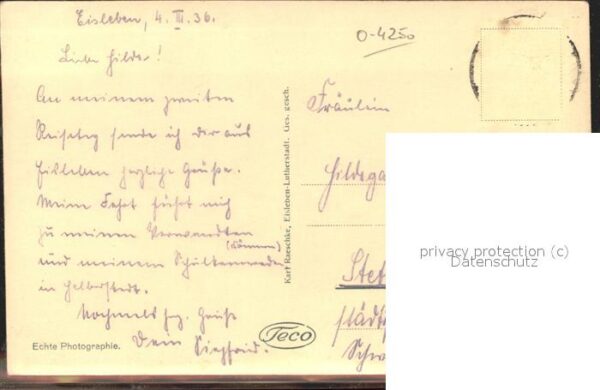 Eisleben, 4. III. 36.
O-4250
Liebe Hilde!
An meinem zweiten
Reisetag sende ich dir aus
Eisleben herzliche Grüße.
Meine Fahrt führt mich
zu meinen Verwandten
(Können)
und meinem Schulkameraden
in Halberstadt.
Nochmals hrz. Grüße
Dein Siegfried.
Fräulein
Hildega
Stet
städt
Schw
Karl Raeschke, Eisleben-Lutherstadt. Ges. gesch.
Echte Photographie.
Teco
privacy protection (c)
Datenschutz